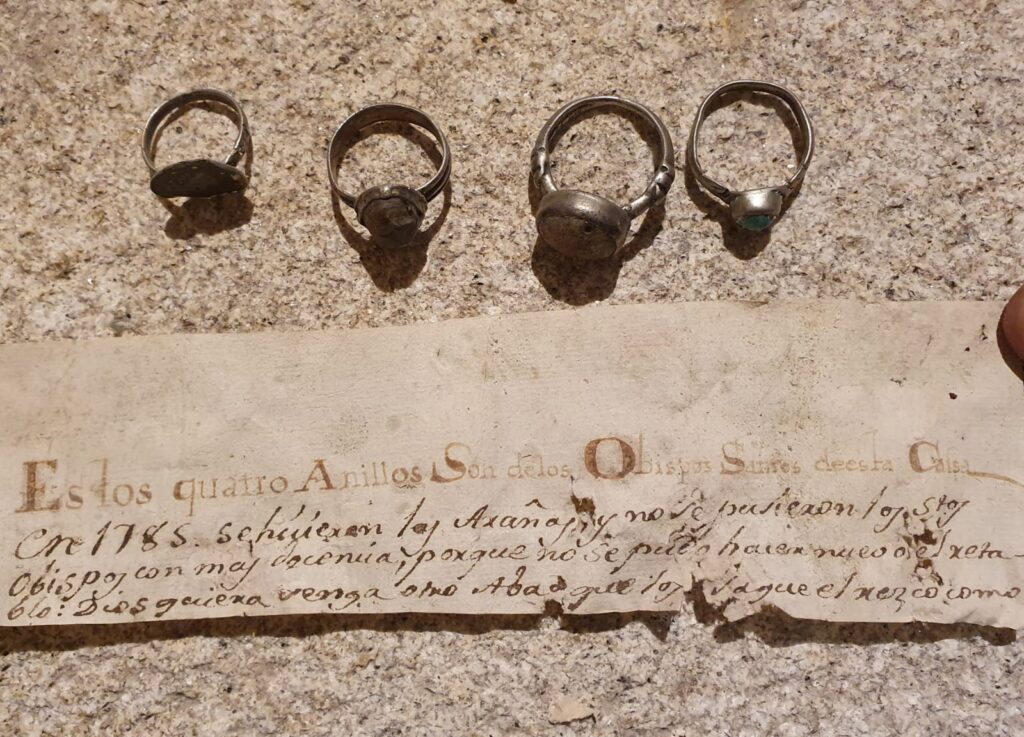 Estos quatro Anillos Son delos Obispos Santos deesta Cassa
En 1785. sehiçieron las Arañas, y no se pusieron los Stos
Obispos con mas decencia, porque no se pudo hacer nuevo el reta-
blo: Dios quiera venga otro Abad que los saque el rezo como